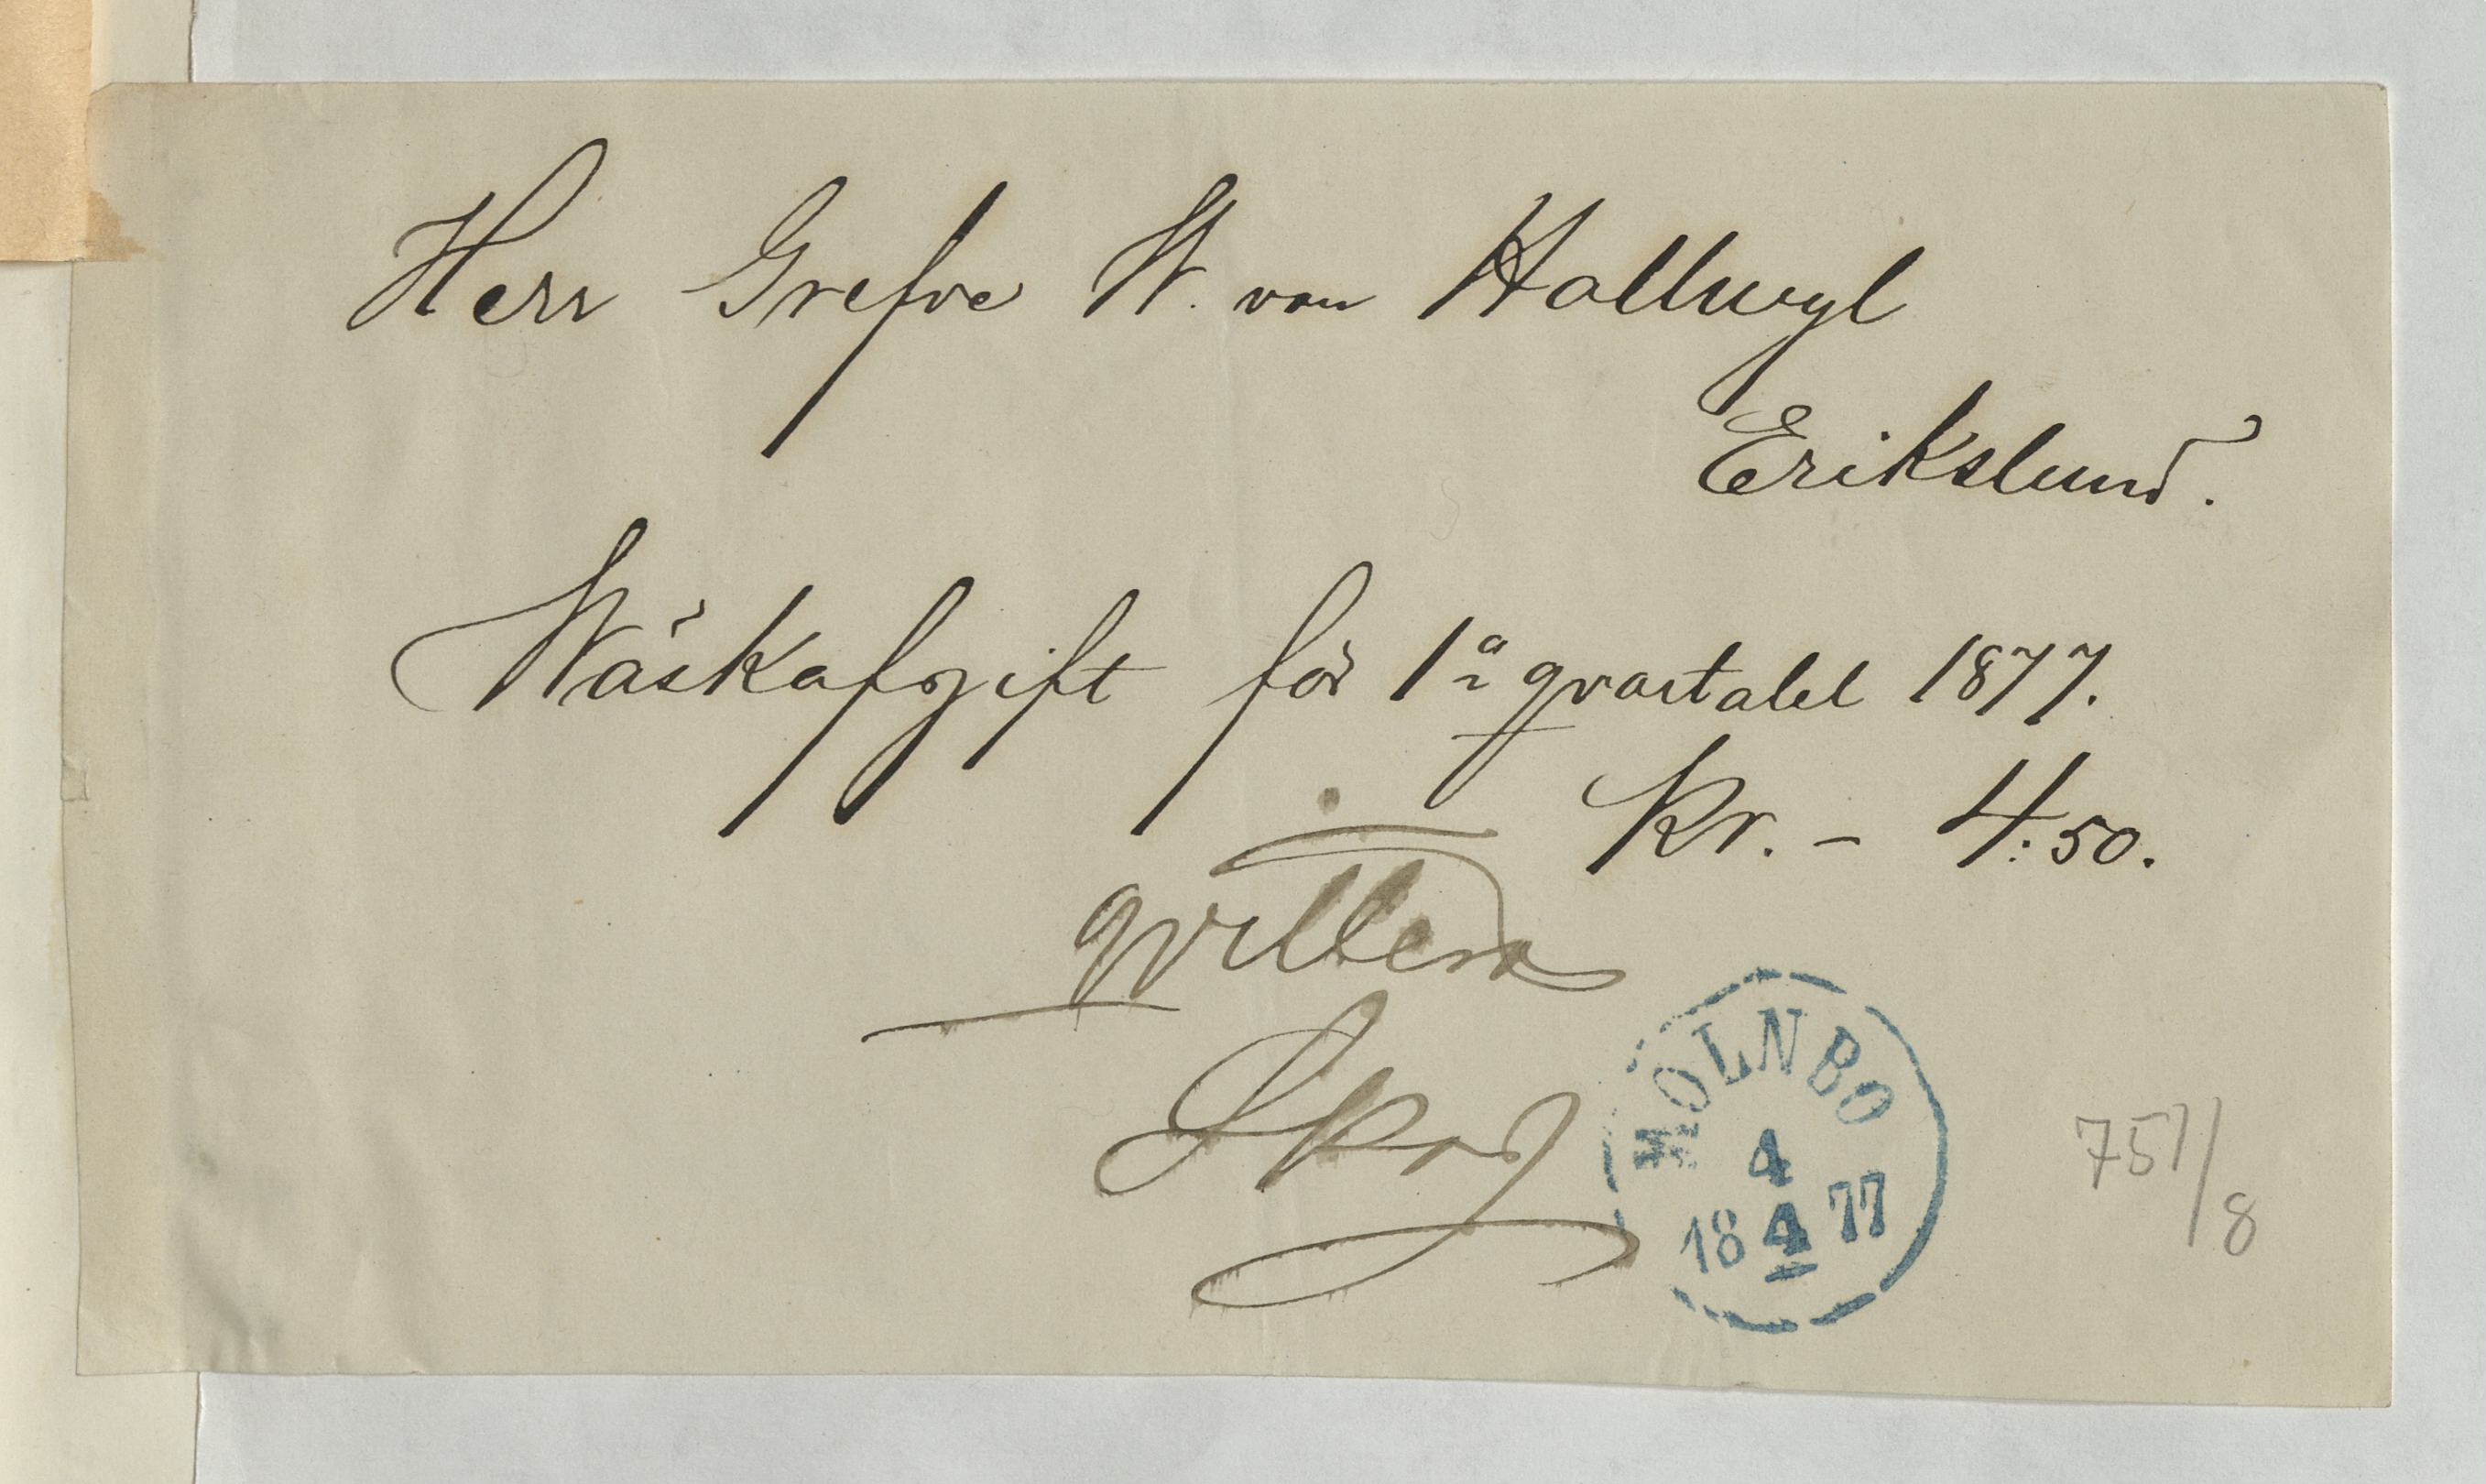 Herr Grefve W. von Hallwyl
Erikslund.
Wäskafgift för 1a qvartalet 1877.
Kr. - 4:50.
qvitteras
MÖLNBO
4
18 4 77
751/8